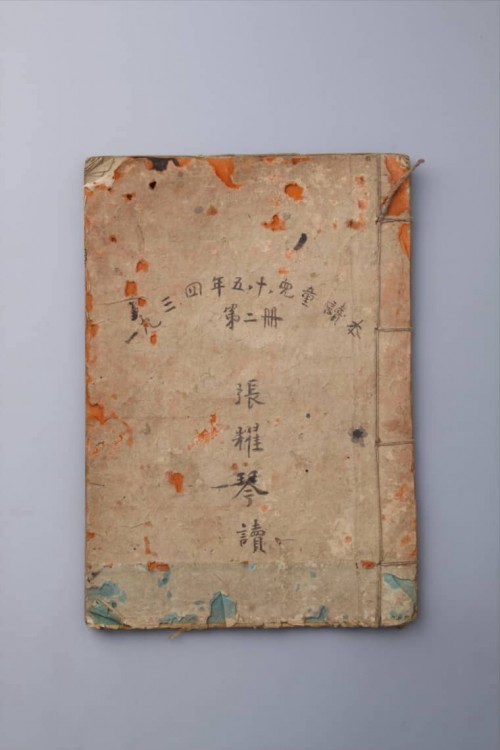 一九三四年五.十.兒童讀本
第二冊
張耀琴讀